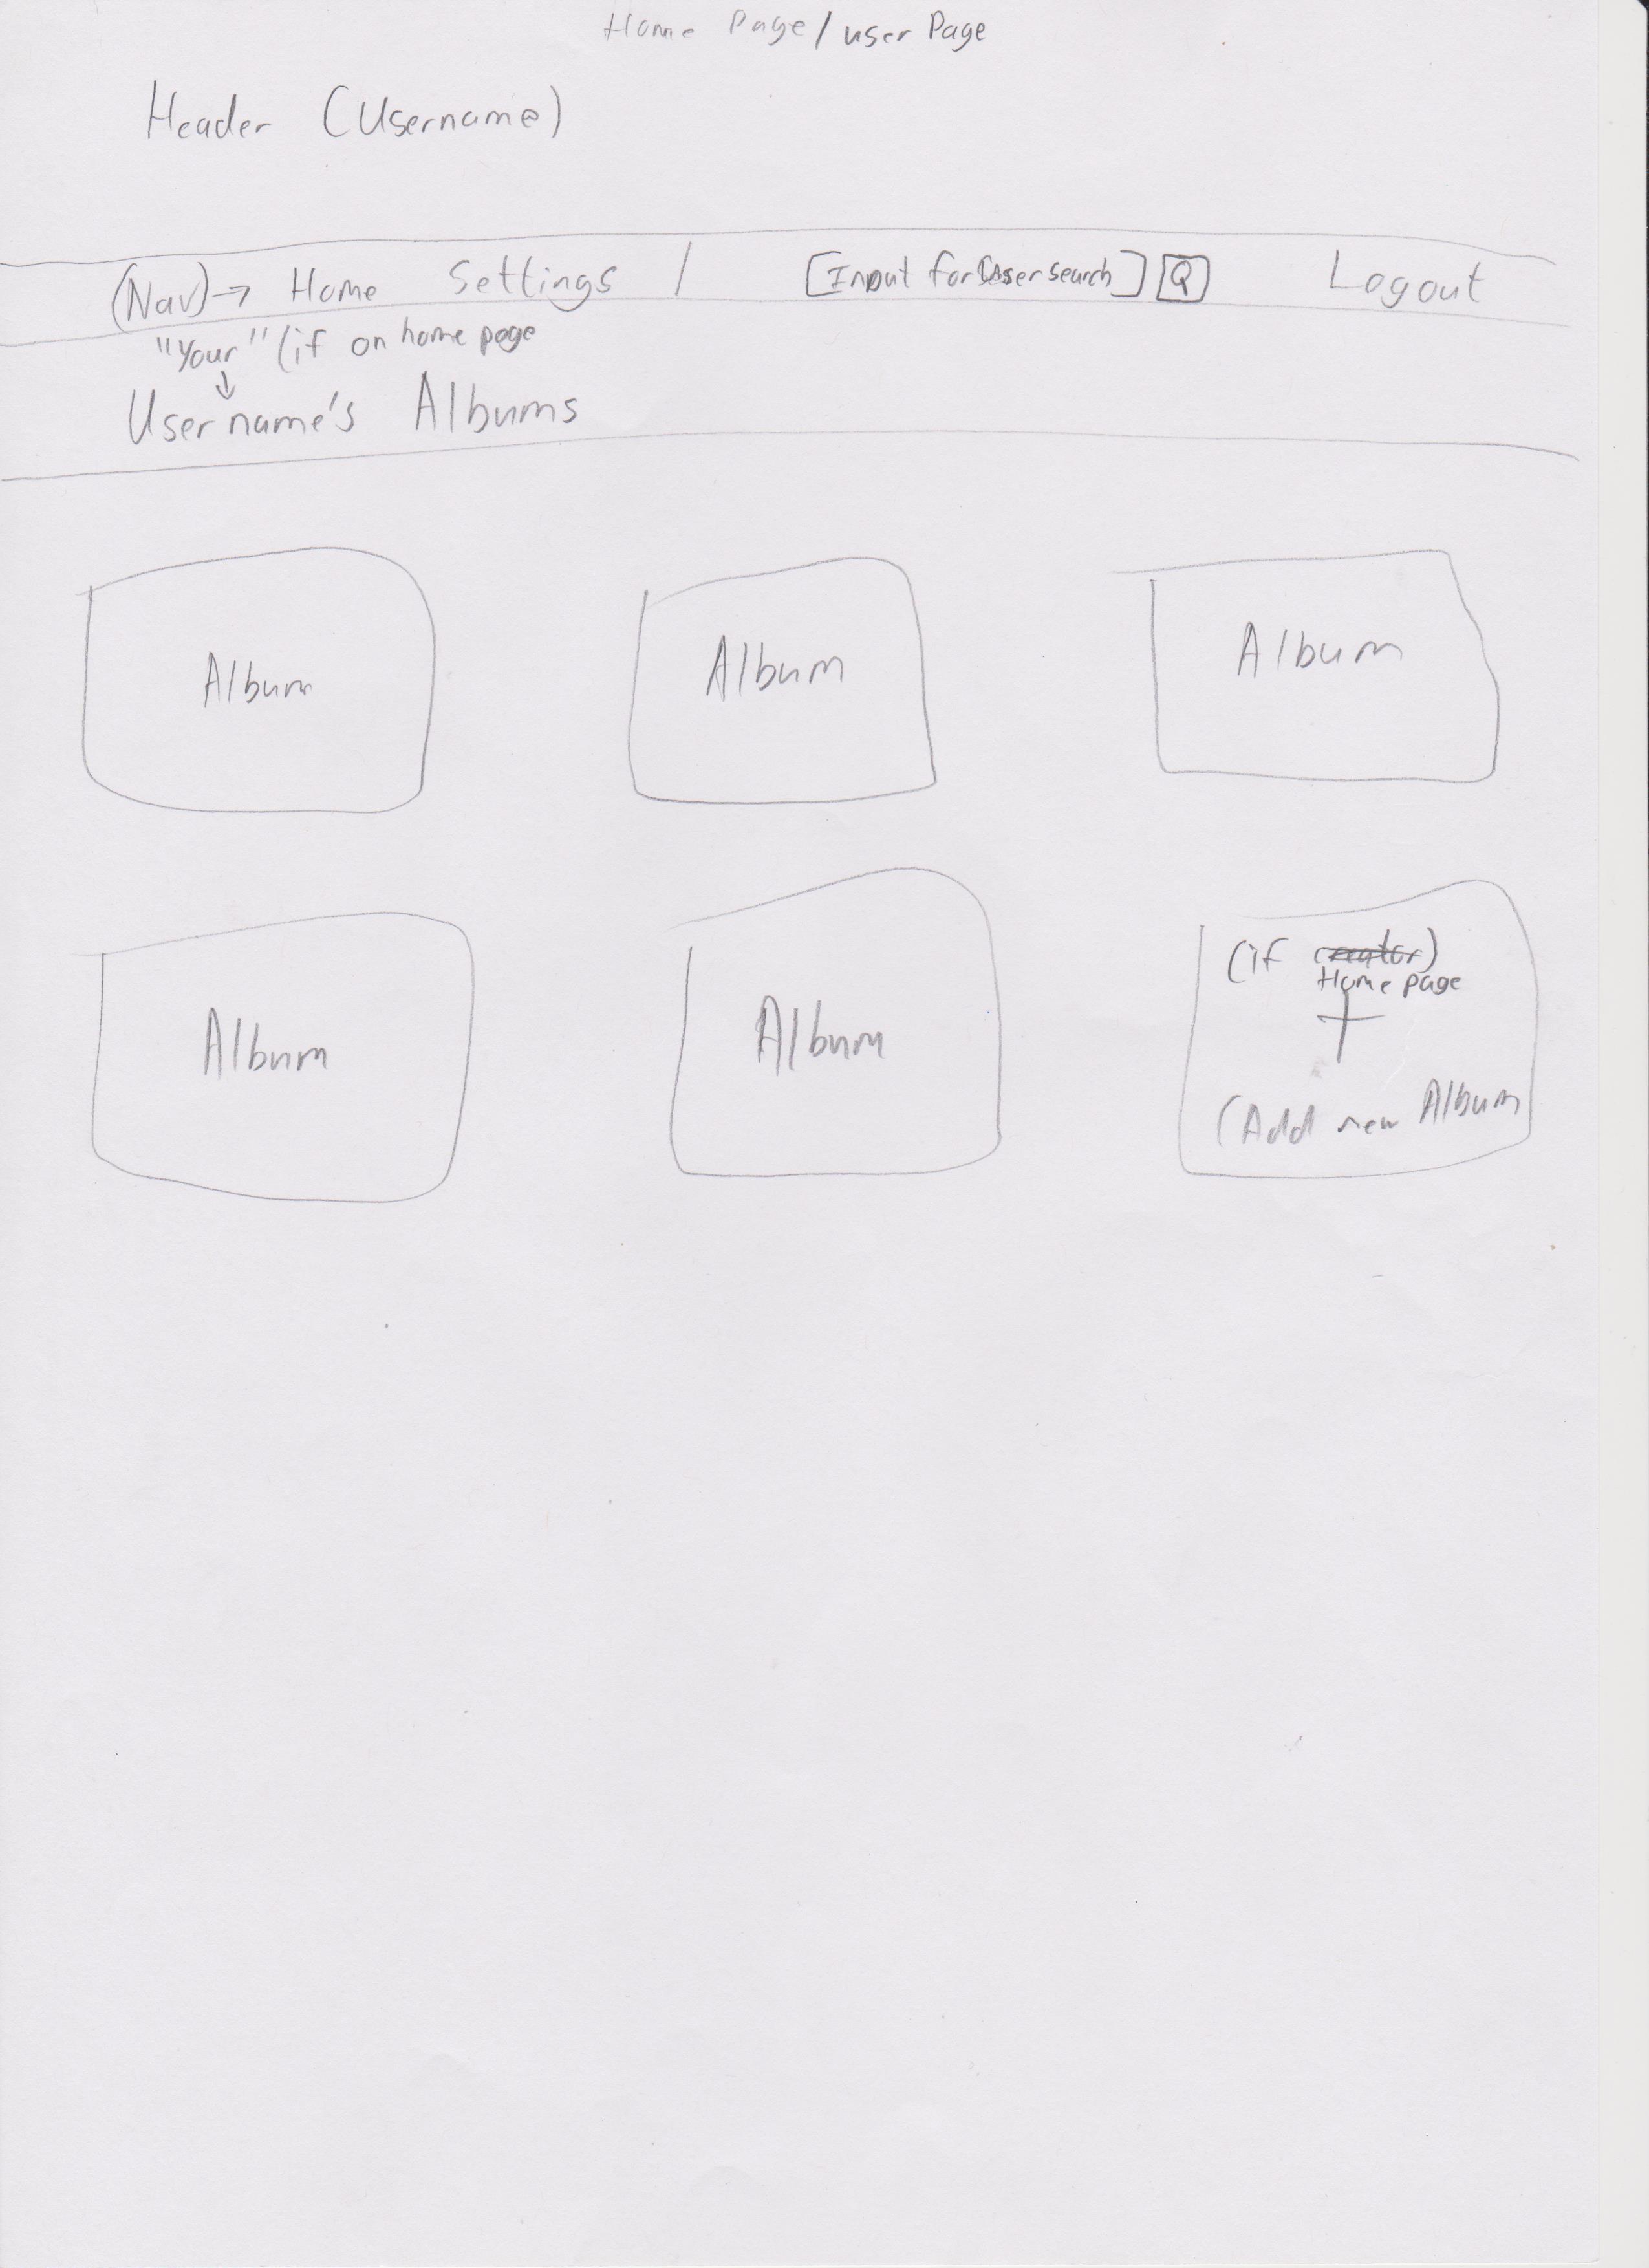 Home Page / user Page
Header (Username)
(Nav) → Home Settings / [Input for User search] [Q] Logout
"Your" (if on home page
↓
Username's Albums
Album Album Album
Album Album
(if creator)
Home page
+
(Add new Album